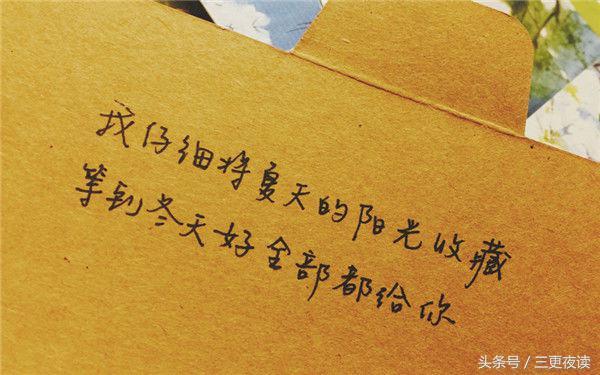 我仔细将夏天的阳光收藏
等到冬天好全部都给你
头条号 / 三更夜读